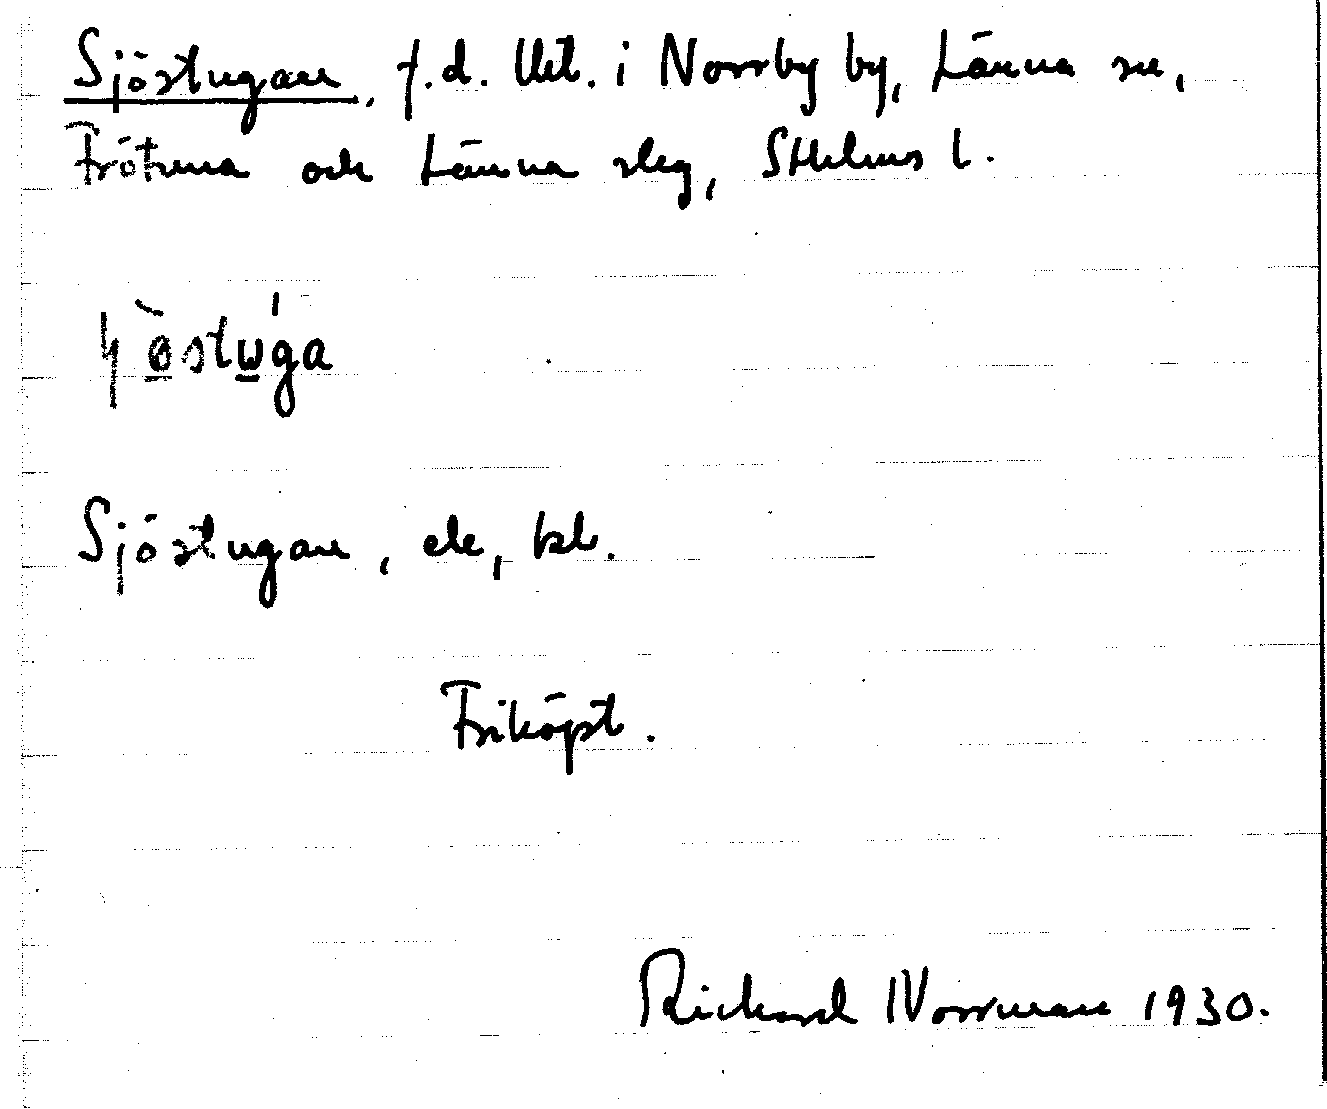 Sjöstugan, f.d. lht. i Norrby by, Länna sn,
Frötuna och Länna slg, Sthlms l.
Sjöstugan, ek, bl.
Friköpt.
Rickard Norrman 1930.